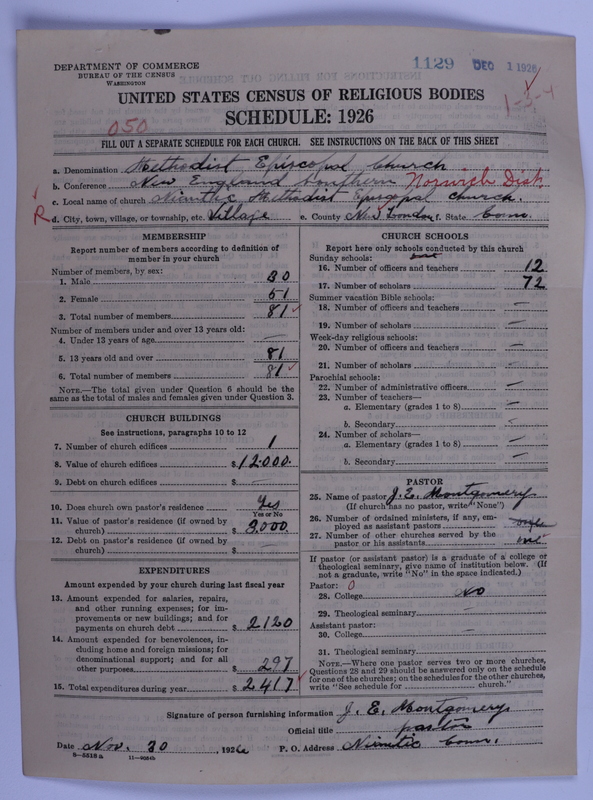 1129 DEC 1 1926
DEPARTMENT OF COMMERCE
BUREAU OF THE CENSUS
WASHINGTON
UNITED STATES CENSUS OF RELIGIOUS BODIES
1-3-4
SCHEDULE: 1926
050
FILL OUT A SEPARATE SCHEDULE FOR EACH CHURCH. SEE INSTRUCTIONS ON THE BACK OF THIS SHEET
a. Denomination Methodist Episcopal Church
b. Conference New England Southern Norwich Dist.
c. Local name of church Niantic Methodist Episcopal Church.
R d. City, town, village, or township, etc. Village e. County New London f. State Conn.
MEMBERSHIP
Report number of members according to definition of
member in your church
Number of members, by sex:
1. Male 30
2. Female 51
3. Total number of members 81
Number of members under and over 13 years old:
4. Under 13 years of age —
5. 13 years old and over 81
6. Total number of members 81
NOTE.—The total given under Question 6 should be the
same as the total of males and females given under Question 3.
CHURCH BUILDINGS
See instructions, paragraphs 10 to 12
7. Number of church edifices 1
8. Value of church edifices $12000.
9. Debt on church edifices $ —
10. Does church own pastor's residence Yes
Yes or No
11. Value of pastor's residence (if owned by
church) $ 3,000.
12. Debt on pastor's residence (if owned by
church) $ —
EXPENDITURES
Amount expended by your church during last fiscal year
13. Amount expended for salaries, repairs,
and other running expenses; for im-
provements or new buildings; and for
payments on church debt $ 2120
14. Amount expended for benevolences, in-
cluding home and foreign missions; for
denominational support; and for all
other purposes $ 297
15. Total expenditures during year $ 2417
CHURCH SCHOOLS
Report here only schools conducted by this church
Sunday schools:
16. Number of officers and teachers 12
17. Number of scholars 72
Summer vacation Bible schools:
18. Number of officers and teachers —
19. Number of scholars —
Week-day religious schools:
20. Number of officers and teachers —
21. Number of scholars —
Parochial schools:
22. Number of administrative officers —
23. Number of teachers—
a. Elementary (grades 1 to 8) —
b. Secondary —
24. Number of scholars—
a. Elementary (grades 1 to 8) —
b. Secondary —
PASTOR
25. Name of pastor J. E. Montgomery
(If church has no pastor, write "None")
26. Number of ordained ministers, if any, em-
ployed as assistant pastors
27. Number of other churches served by the
pastor or his assistants one
If pastor (or assistant pastor) is a graduate of a college or
theological seminary, give name of institution below. (If
not a graduate, write "No" in the space indicated.)
Pastor: 0
28. College No
29. Theological seminary —
Assistant pastor:
30. College —
31. Theological seminary
NOTE.—Where one pastor serves two or more churches,
Questions 28 and 29 should be answered only on the schedule
for one of the churches; on the schedules for the other churches,
write "See schedule for church."
Signature of person furnishing information J. E. Montgomery
Official title pastor
Date Nov. 30, 1926 P. O. Address Niantic Conn.
8—5518a 11—9064b